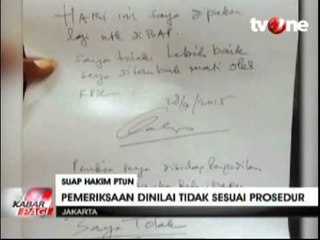 tvOne
HARI ini saya dipaksa
lagi utk di BAP.
saya tolak. Lebih baik
saya ditembak mati oleh
KPK
28/9/2015
saya disidang
SUAP HAKIM PTUN
KABAR
PAGI
PEMERIKSAAN DINILAI TIDAK SESUAI PROSEDUR
JAKARTA
Saya Tolak